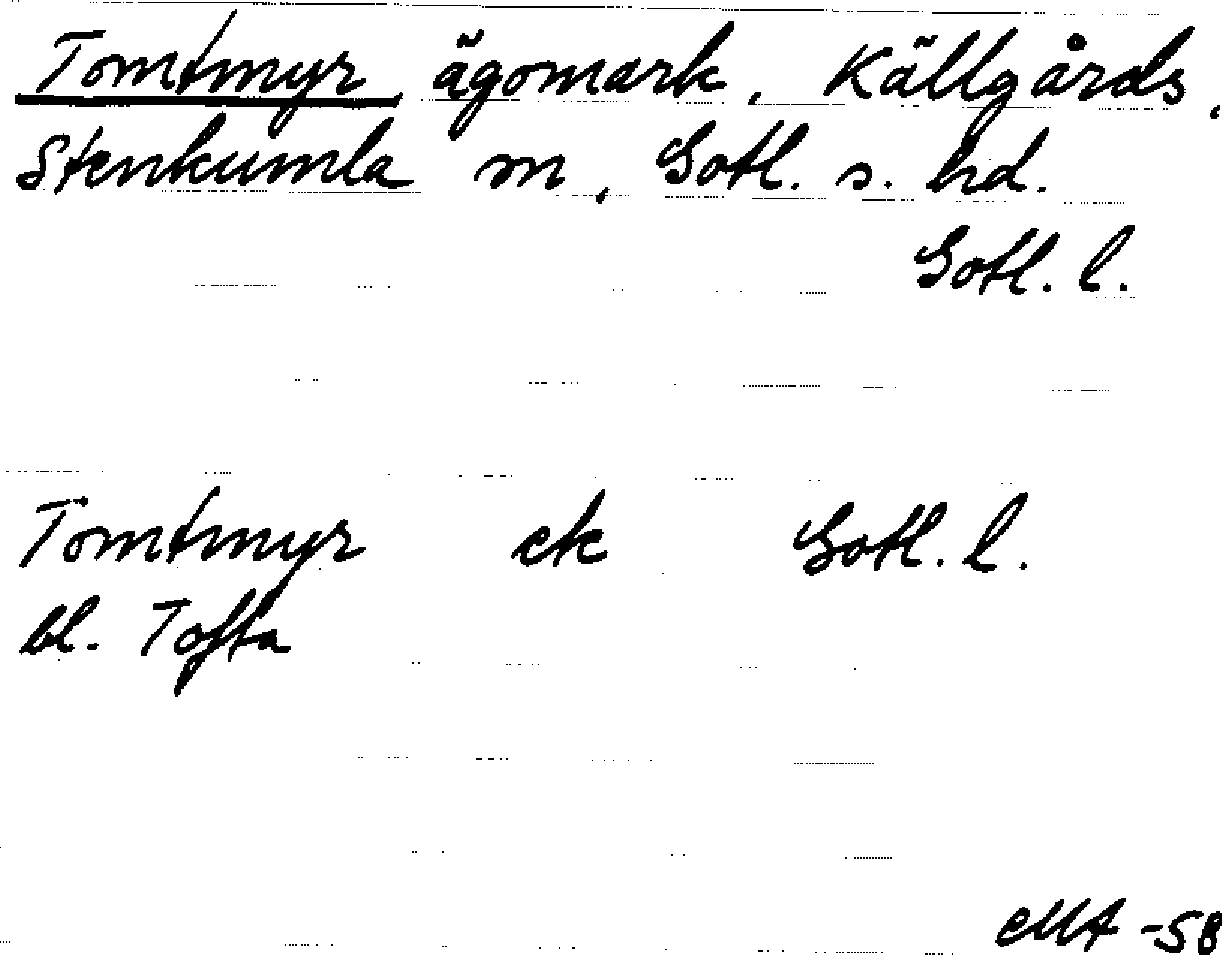 Tomtmyr, ägomark, Källgårds,
Stenkumla sn, Gotl. s. hd.
Gotl. l.
Tomtmyr ek Gotl. l.
bl. Tofta
-58